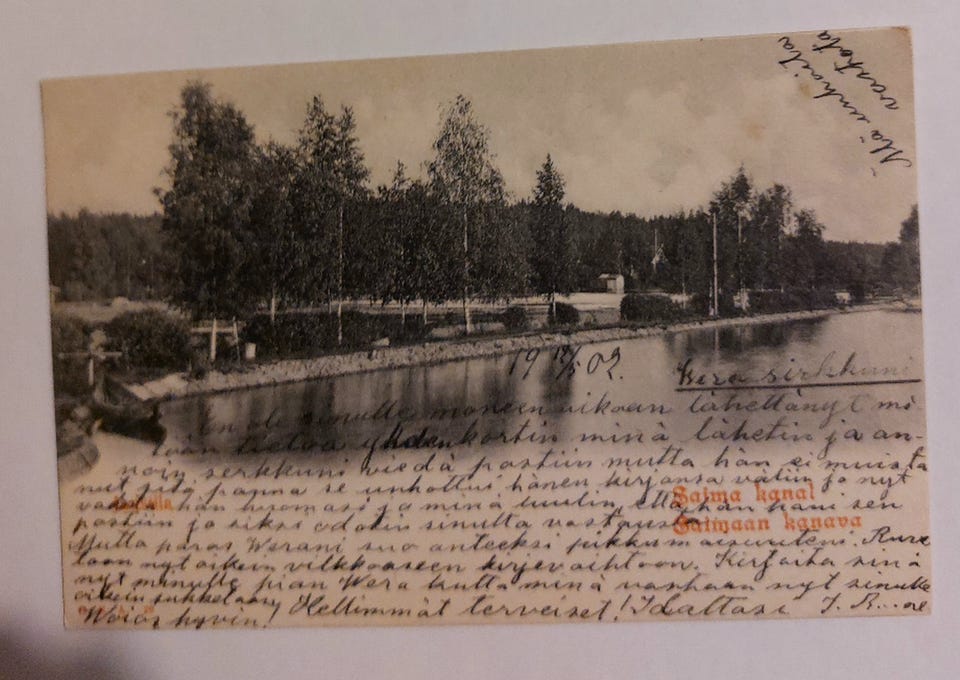 Älä unhoita
vastata
19 12/5 02.
Wera sirkkuni
En ole sinulle moneen aikaan lähettänyt mi-
tään tietoa yhden kortin minä lähetin ja an-
noin serkkuni viedä postiin mutta hän ei muista
nut sitä panna se unhottui hänen kirjansa väliin ja nyt
vasta hän huomasi ja minä luulin että hän pani sen
postiin ja siksi odotin sinulta vastausta
Mutta paras Werani suo anteeksi pikkumaisuuteni. Ruve
taan nyt oikein vilkkaaseen kirjevaihtoon. Kirjoita sinä
nyt minulle pian Wera kulta minä vastaan nyt sinulle
oikein sukkelaan Hellimmät terveiset! Idaltasi J. R...ne
Woios hyvin!
Saima kanal
Saimaan kanava